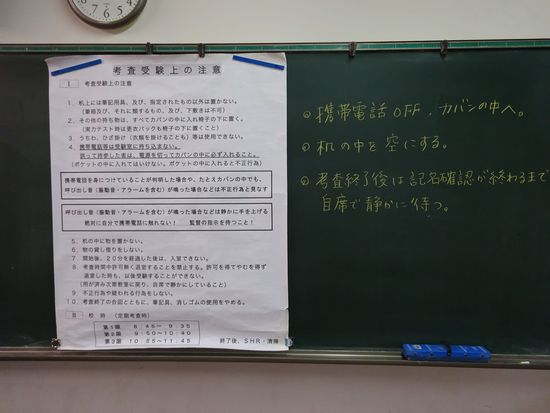 考査受験上の注意
Ⅰ 考査受験上の注意
1．机上には筆記用具、及び、指定されたもの以外は置かない。
（筆箱及び、それに類するもの、及び、下敷きは不可）
2．その他の持ち物は、すべてカバンの中に入れ椅子の下に置く。
（実力テスト時は更衣バックも椅子の下に置くこと）
3．うちわ、ひざ掛け（衣類を掛けることも）等は使用できない。
4．携帯電話等は受験室に持ち込まない。
誤って持参した者は、電源を切ってカバンの中に必ず入れること。
（ポケットの中に入れてはいけない。ポケットの中に入れると不正行為）
携帯電話を身につけていることが判明した場合や、たとえカバンの中でも、
呼び出し音（振動音・アラームを含む）が鳴った場合などは不正行為と見なす
呼び出し音（振動音・アラームを含む）が鳴った場合などは静かに手を上げる
絶対に自分で携帯電話に触れない！ 監督の指示を待つこと！
5．机の中に物を置かない。
6．物の貸し借りをしない。
7．開始後、20分を経過した後は、入室できない。
8．考査時間中許可無く退室することを禁止する。許可を得てやむを得ず
退室した時も、以後受験することができない。
（用が済み次第教室に戻り、自席で静かにしていること）
9．不正行為や疑われる行為をしない。
10．考査終了の合図とともに、筆記具、消しゴムの使用をやめる。
Ⅱ 校時（定期考査時）
第1限 8：45～ 9：35
第2限 9：50～10：40
第3限 10：55～11：45
終了後、SHR・清掃
◎ 携帯電話OFF、カバンの中へ。
◎ 机の中を空にする。
◎ 考査終了後は記名確認が終わるまで
自席で静かに待つ。